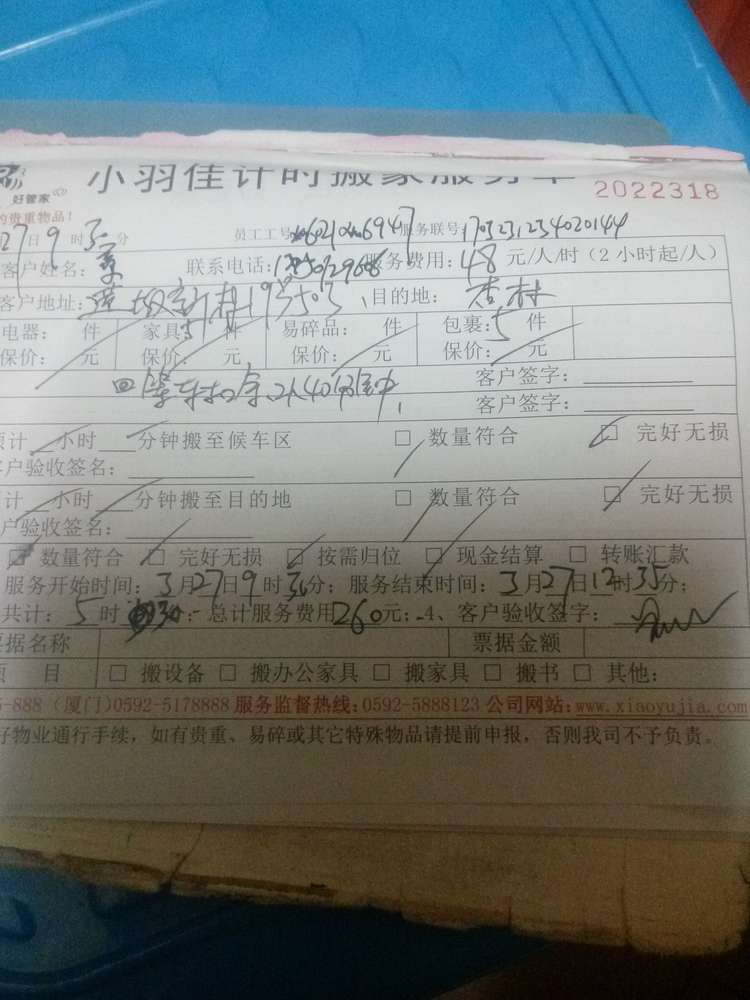 好管家
小羽佳计时搬家服务单
2022318
的贵重物品!
27日9时30分 员工工号 服务联号:1703231234020144
客户姓名: 联系电话: 服务费用:48元/人/时(2小时起/人)
客户地址: 目的地:杏村
电器: 件 家具: 件 易碎品: 件 包裹:5件
保价: 元 保价: 元 保价: 元 保价: 元
客户签字:
客户签字:
预计 小时 分钟搬至候车区 □ 数量符合 □ 完好无损
客户验收签名:
预计 小时 分钟搬至目的地 □ 数量符合 □ 完好无损
客户验收签名:
□ 数量符合 □ 完好无损 □ 按需归位 □ 现金结算 □ 转账汇款
服务开始时间:3月27日9时30分;服务结束时间:3月27日12时35分;
共计:5时 总计服务费用260元;4、客户验收签字:
票据名称 票据金额
项 目 □ 搬设备 □ 搬办公家具 □ 搬家具 □ 搬书 □ 其他:
-888(厦门)0592-5178888 服务监督热线:0592-5888123 公司网站:www.xiaoyujia.com
好物业通行手续,如有贵重、易碎或其它特殊物品请提前申报,否则我司不予负责。